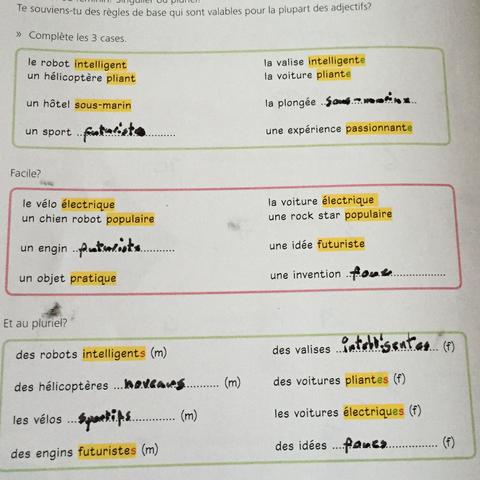 Te souviens-tu des règles de base qui sont valables pour la plupart des adjectifs?
» Complète les 3 cases.
le robot intelligent
la valise intelligente
un hélicoptère pliant
la voiture pliante
un hôtel sous-marin
la plongée sous-marine
un sport futuriste
une expérience passionnante
Facile?
le vélo électrique
la voiture électrique
un chien robot populaire
une rock star populaire
un engin futuriste
une idée futuriste
un objet pratique
une invention
Et au pluriel?
des robots intelligents (m)
des valises intelligentes (f)
des hélicoptères (m)
des voitures pliantes (f)
les vélos sportifs (m)
les voitures électriques (f)
des engins futuristes (m)
des idées (f)